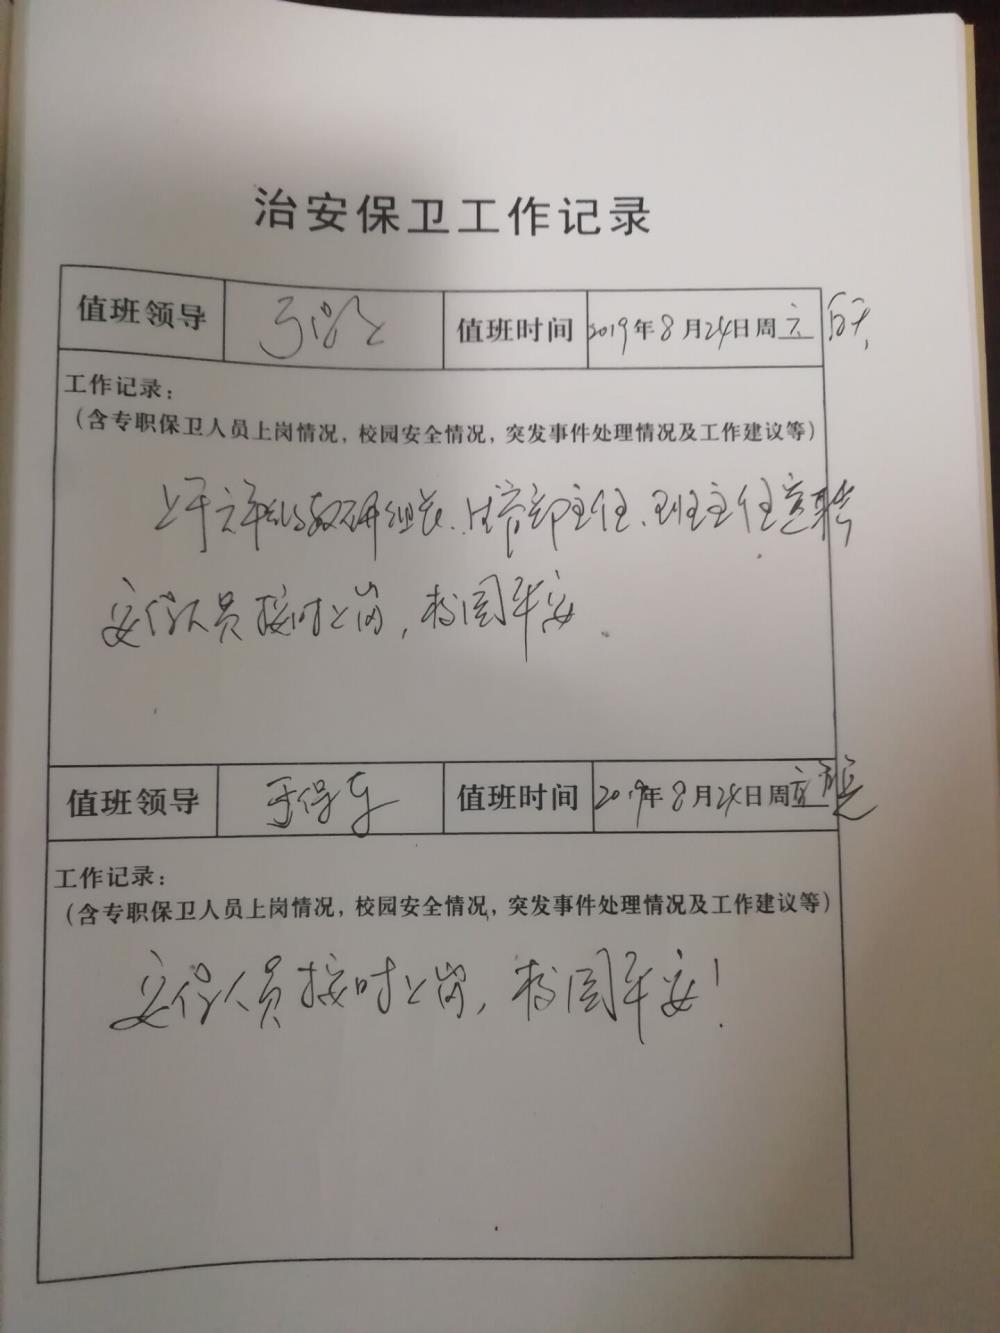 治安保卫工作记录
值班领导 值班时间 2019年8月24日周六 白天
工作记录：
（含专职保卫人员上岗情况，校园安全情况，突发事件处理情况及工作建议等）
上午 教研组长、体育部主任、班主任 聘
安保人员按时上岗，校园平安。
值班领导 于保存 值班时间 2019年8月24日周六
工作记录：
（含专职保卫人员上岗情况，校园安全情况，突发事件处理情况及工作建议等）
安保人员按时上岗，校园平安！